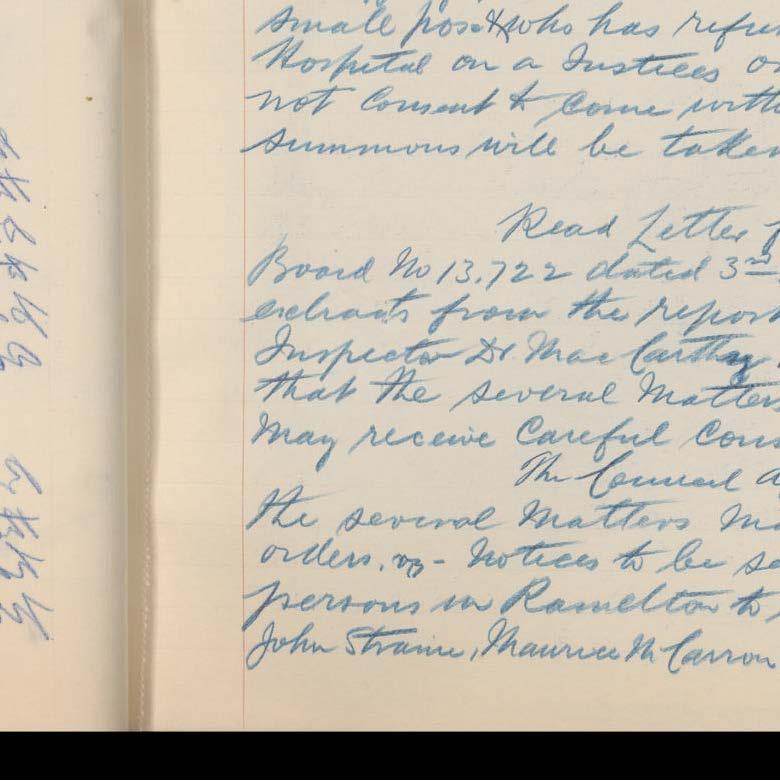 small pox & who has refu
Hospital on a Justices o
not Consent to Come with
summons will be taken
Read Letter f
Board No 13.722 dated 3rd
extracts from the report
Inspector Dr. MacCarthy
that the several Matters
May receive Careful Cons
The Council a
the several Matters M
orders. viz - Notices to be se
persons in Ramelton to
John Strain, Maurice McCarron